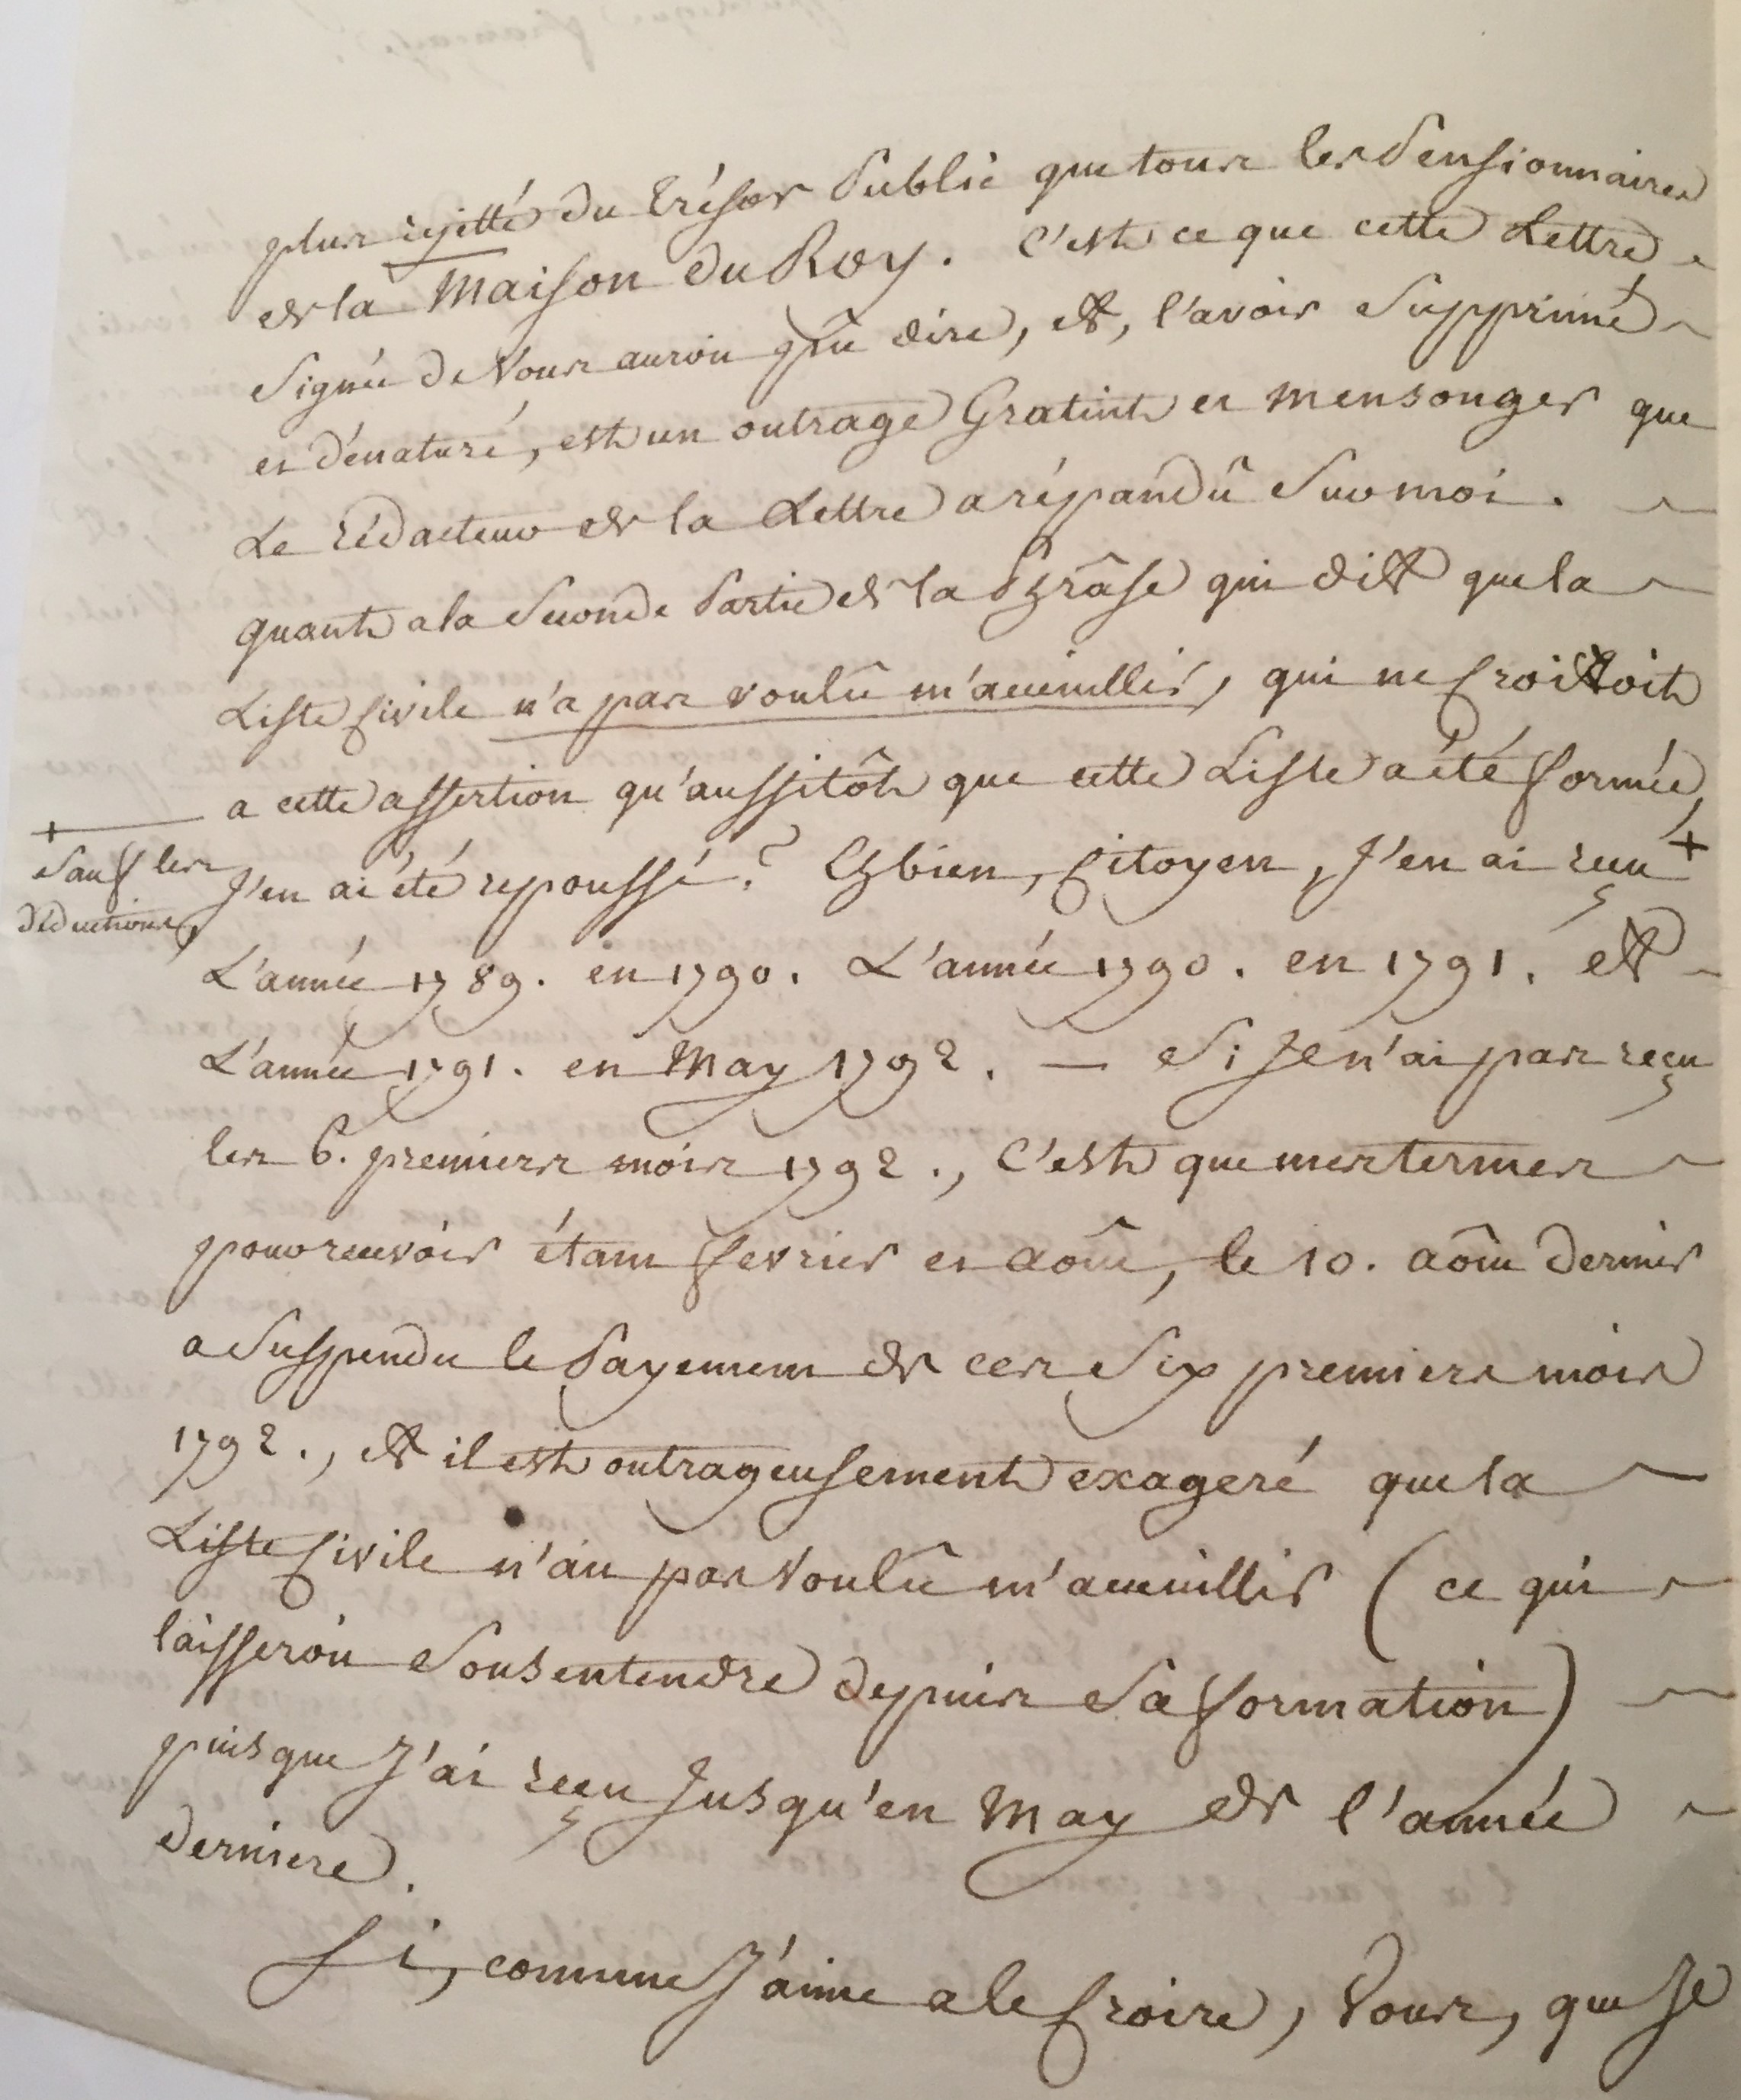 plus rejitté du trésor Public que tous les Pensionnaires
de la Maison du Roy. C'est ce que cette Lettre
Signée de Vous auroit pû dire, et, l'avoir Supprimé
et dénaturé, est un outrage Gratuit et mensonger que
Le rédacteur de la Lettre a répandû Sur moi.
quant a la Seconde Partie de la Phrâse qui dit que la
Liste Civile n'a pas voulû m'accueillir, qui ne Croittoit
a cette assertion qu'aussitôt que cette Liste a été formée,
J'en ai été repoussé? Ehbien, Citoyen, J'en ai reçu +
+ Sauf les
déductions,
L'année 1789. en 1790. L'année 1790. en 1791. et
L'année 1791. en May 1792. — Si Je n'ai pas reçu
les 6. premiers mois 1792., C'est que mes termes
pour recevoir étant fevrier et aôut, le 10. aôut dernier
a Suspendu le Payement de ces Six premiers mois
1792., et il est outrageusement exageré que la
Liste Civile n'ait pas Voulû m'accueillir (ce qui
laisseroit Sousentendre depuis Sa formation)
puisque J'ai reçu Jusqu'en May de l'année
derniere.
Si, comme J'aime a le Croire, Vous, que Je